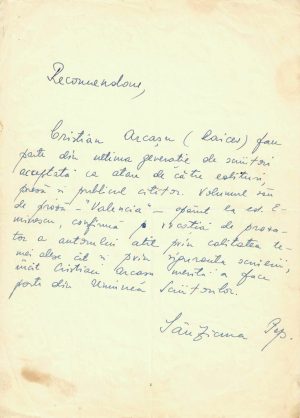 Recomandare,
Cristian Arcașu (Raicea) face
parte din ultima generație de scriitori
acceptată ca atare de către edituri,
presă și publicul cititor. Volumul său
de proză – "Valencia" – apărut la ed. E-
minescu, confirmă vocația de proza-
tor a autorului atât prin calitatea te-
mei alese cât și prin siguranța scrierii,
încît Cristian Arcașu merită a face
parte din Uniunea Scriitorilor.
Sânziana Pop.